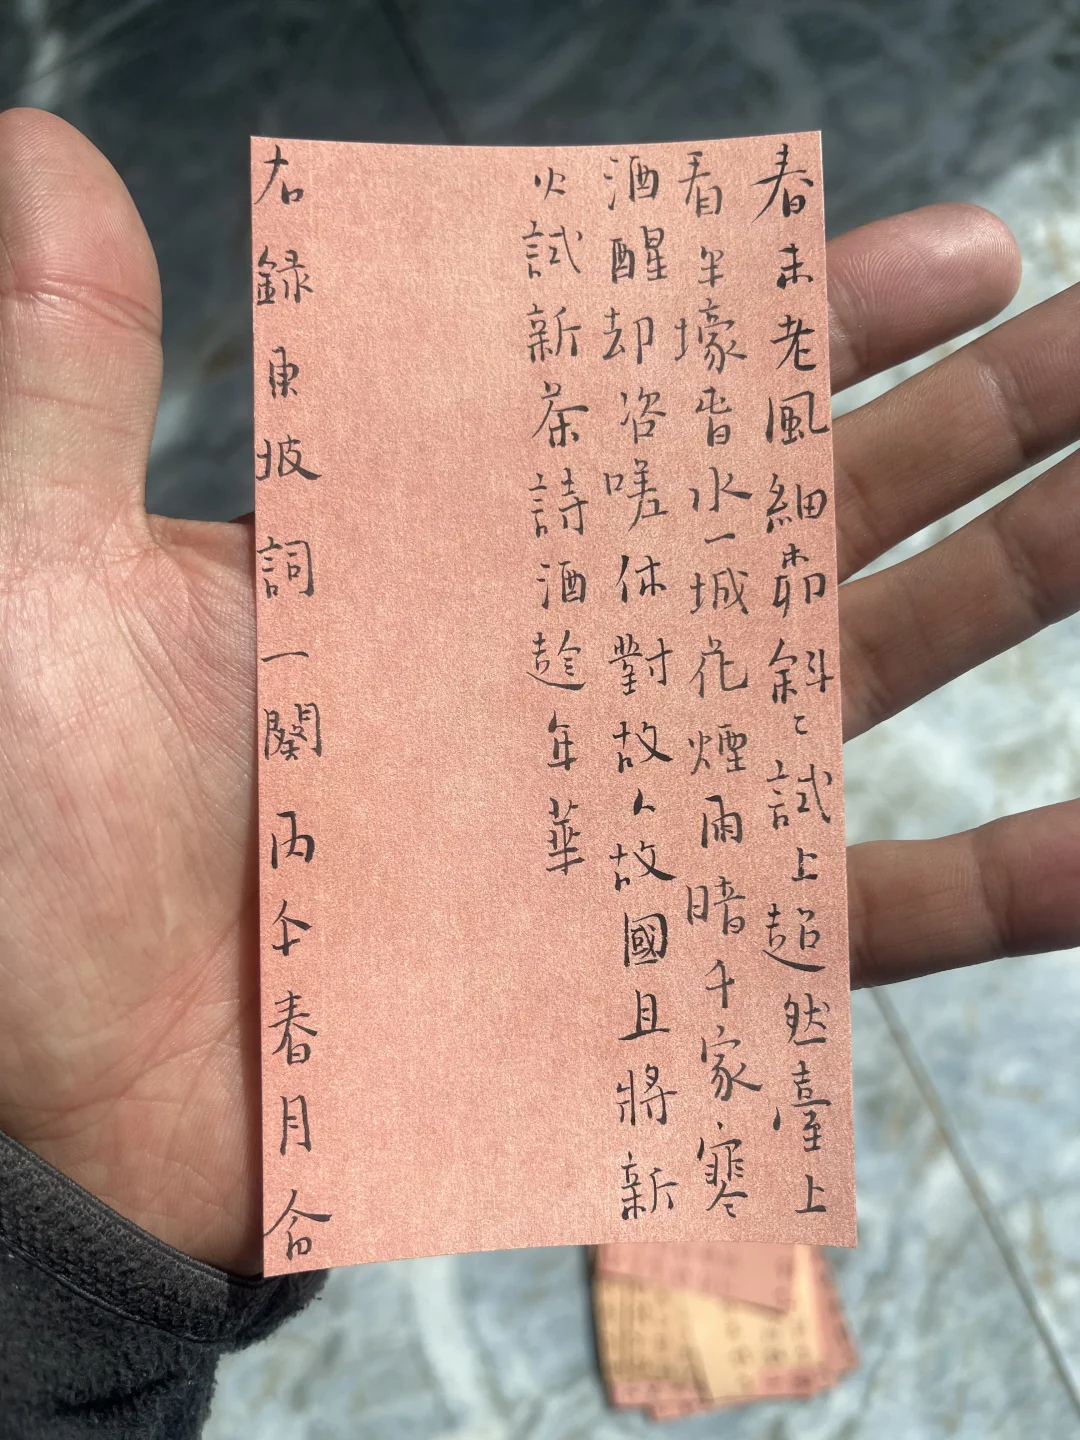 春未老風細柳斜〻試上超然臺上
看半壕春水一城花煙雨暗千家寒
酒醒却咨嗟休對故人故國且將新
火試新茶詩酒趁年華
右録東坡詞一闋丙午春月